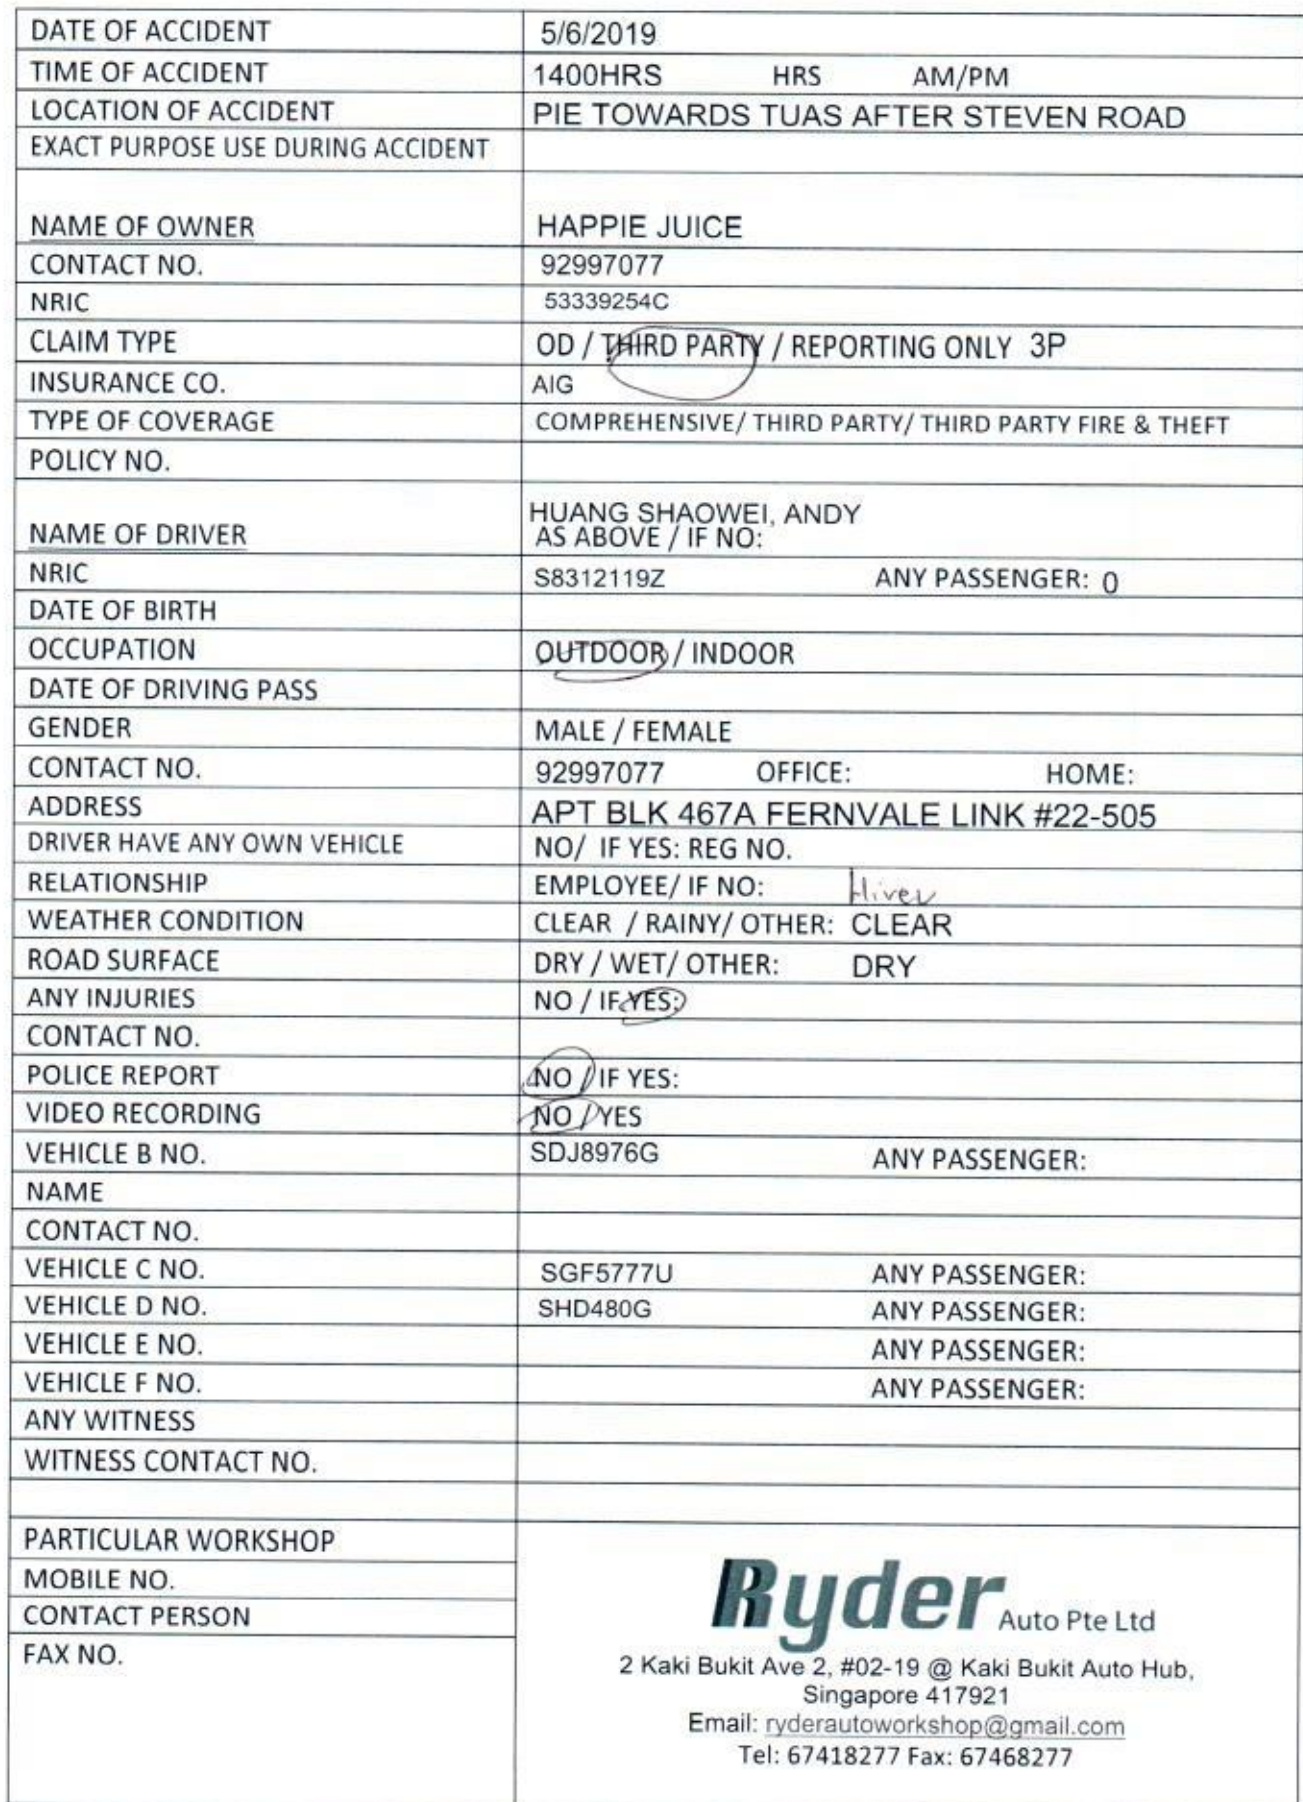 DATE OF ACCIDENT 5/6/2019
TIME OF ACCIDENT 1400HRS HRS AM/PM
LOCATION OF ACCIDENT PIE TOWARDS TUAS AFTER STEVEN ROAD
EXACT PURPOSE USE DURING ACCIDENT
NAME OF OWNER HAPPIE JUICE
CONTACT NO. 92997077
NRIC 53339254C
CLAIM TYPE OD / THIRD PARTY / REPORTING ONLY 3P
INSURANCE CO. AIG
TYPE OF COVERAGE COMPREHENSIVE/ THIRD PARTY/ THIRD PARTY FIRE & THEFT
POLICY NO.
HUANG SHAOWEI, ANDY
NAME OF DRIVER AS ABOVE / IF NO:
NRIC S8312119Z ANY PASSENGER: 0
DATE OF BIRTH
OCCUPATION OUTDOOR / INDOOR
DATE OF DRIVING PASS
GENDER MALE / FEMALE
CONTACT NO. 92997077 OFFICE: HOME:
ADDRESS APT BLK 467A FERNVALE LINK #22-505
DRIVER HAVE ANY OWN VEHICLE NO/ IF YES: REG NO.
RELATIONSHIP EMPLOYEE/ IF NO:
WEATHER CONDITION CLEAR / RAINY/ OTHER: CLEAR
ROAD SURFACE DRY / WET/ OTHER: DRY
ANY INJURIES NO / IF YES:
CONTACT NO.
POLICE REPORT NO / IF YES:
VIDEO RECORDING NO / YES
VEHICLE B NO. SDJ8976G ANY PASSENGER:
NAME
CONTACT NO.
VEHICLE C NO. SGF5777U ANY PASSENGER:
VEHICLE D NO. SHD480G ANY PASSENGER:
VEHICLE E NO. ANY PASSENGER:
VEHICLE F NO. ANY PASSENGER:
ANY WITNESS
WITNESS CONTACT NO.
PARTICULAR WORKSHOP
MOBILE NO.
CONTACT PERSON
FAX NO.
Ryder Auto Pte Ltd
2 Kaki Bukit Ave 2, #02-19 @ Kaki Bukit Auto Hub,
Singapore 417921
Email: ryderautoworkshop@gmail.com
Tel: 67418277 Fax: 67468277